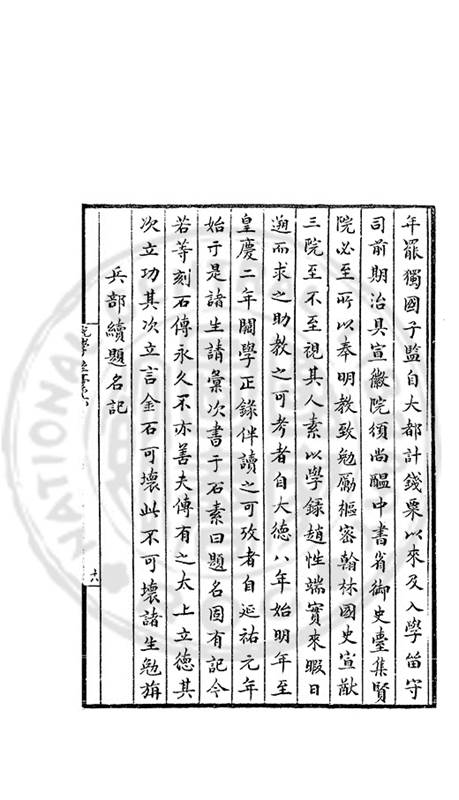 年罷獨國子監自大都計錢粟以來及入學笛守
司前期治具宣徽院須尚醞中書省御史臺集賢
院必至所以奉明教致勉勵樞密翰林國史宣猷
三院至不至視其人素以學録趙性端實來暇日
遡而求之助教之可考者自大德八年始明年至
皇慶二年闕學正錄伴讀之可攷者自延祐元年
始于是諸生請彙次書于石素曰題名固有記今
若等刻石傳永久不亦善夫傳有之太上立德其
次立功其次立言金石可壞此不可壞諸生勉旃
兵部續題名記
六